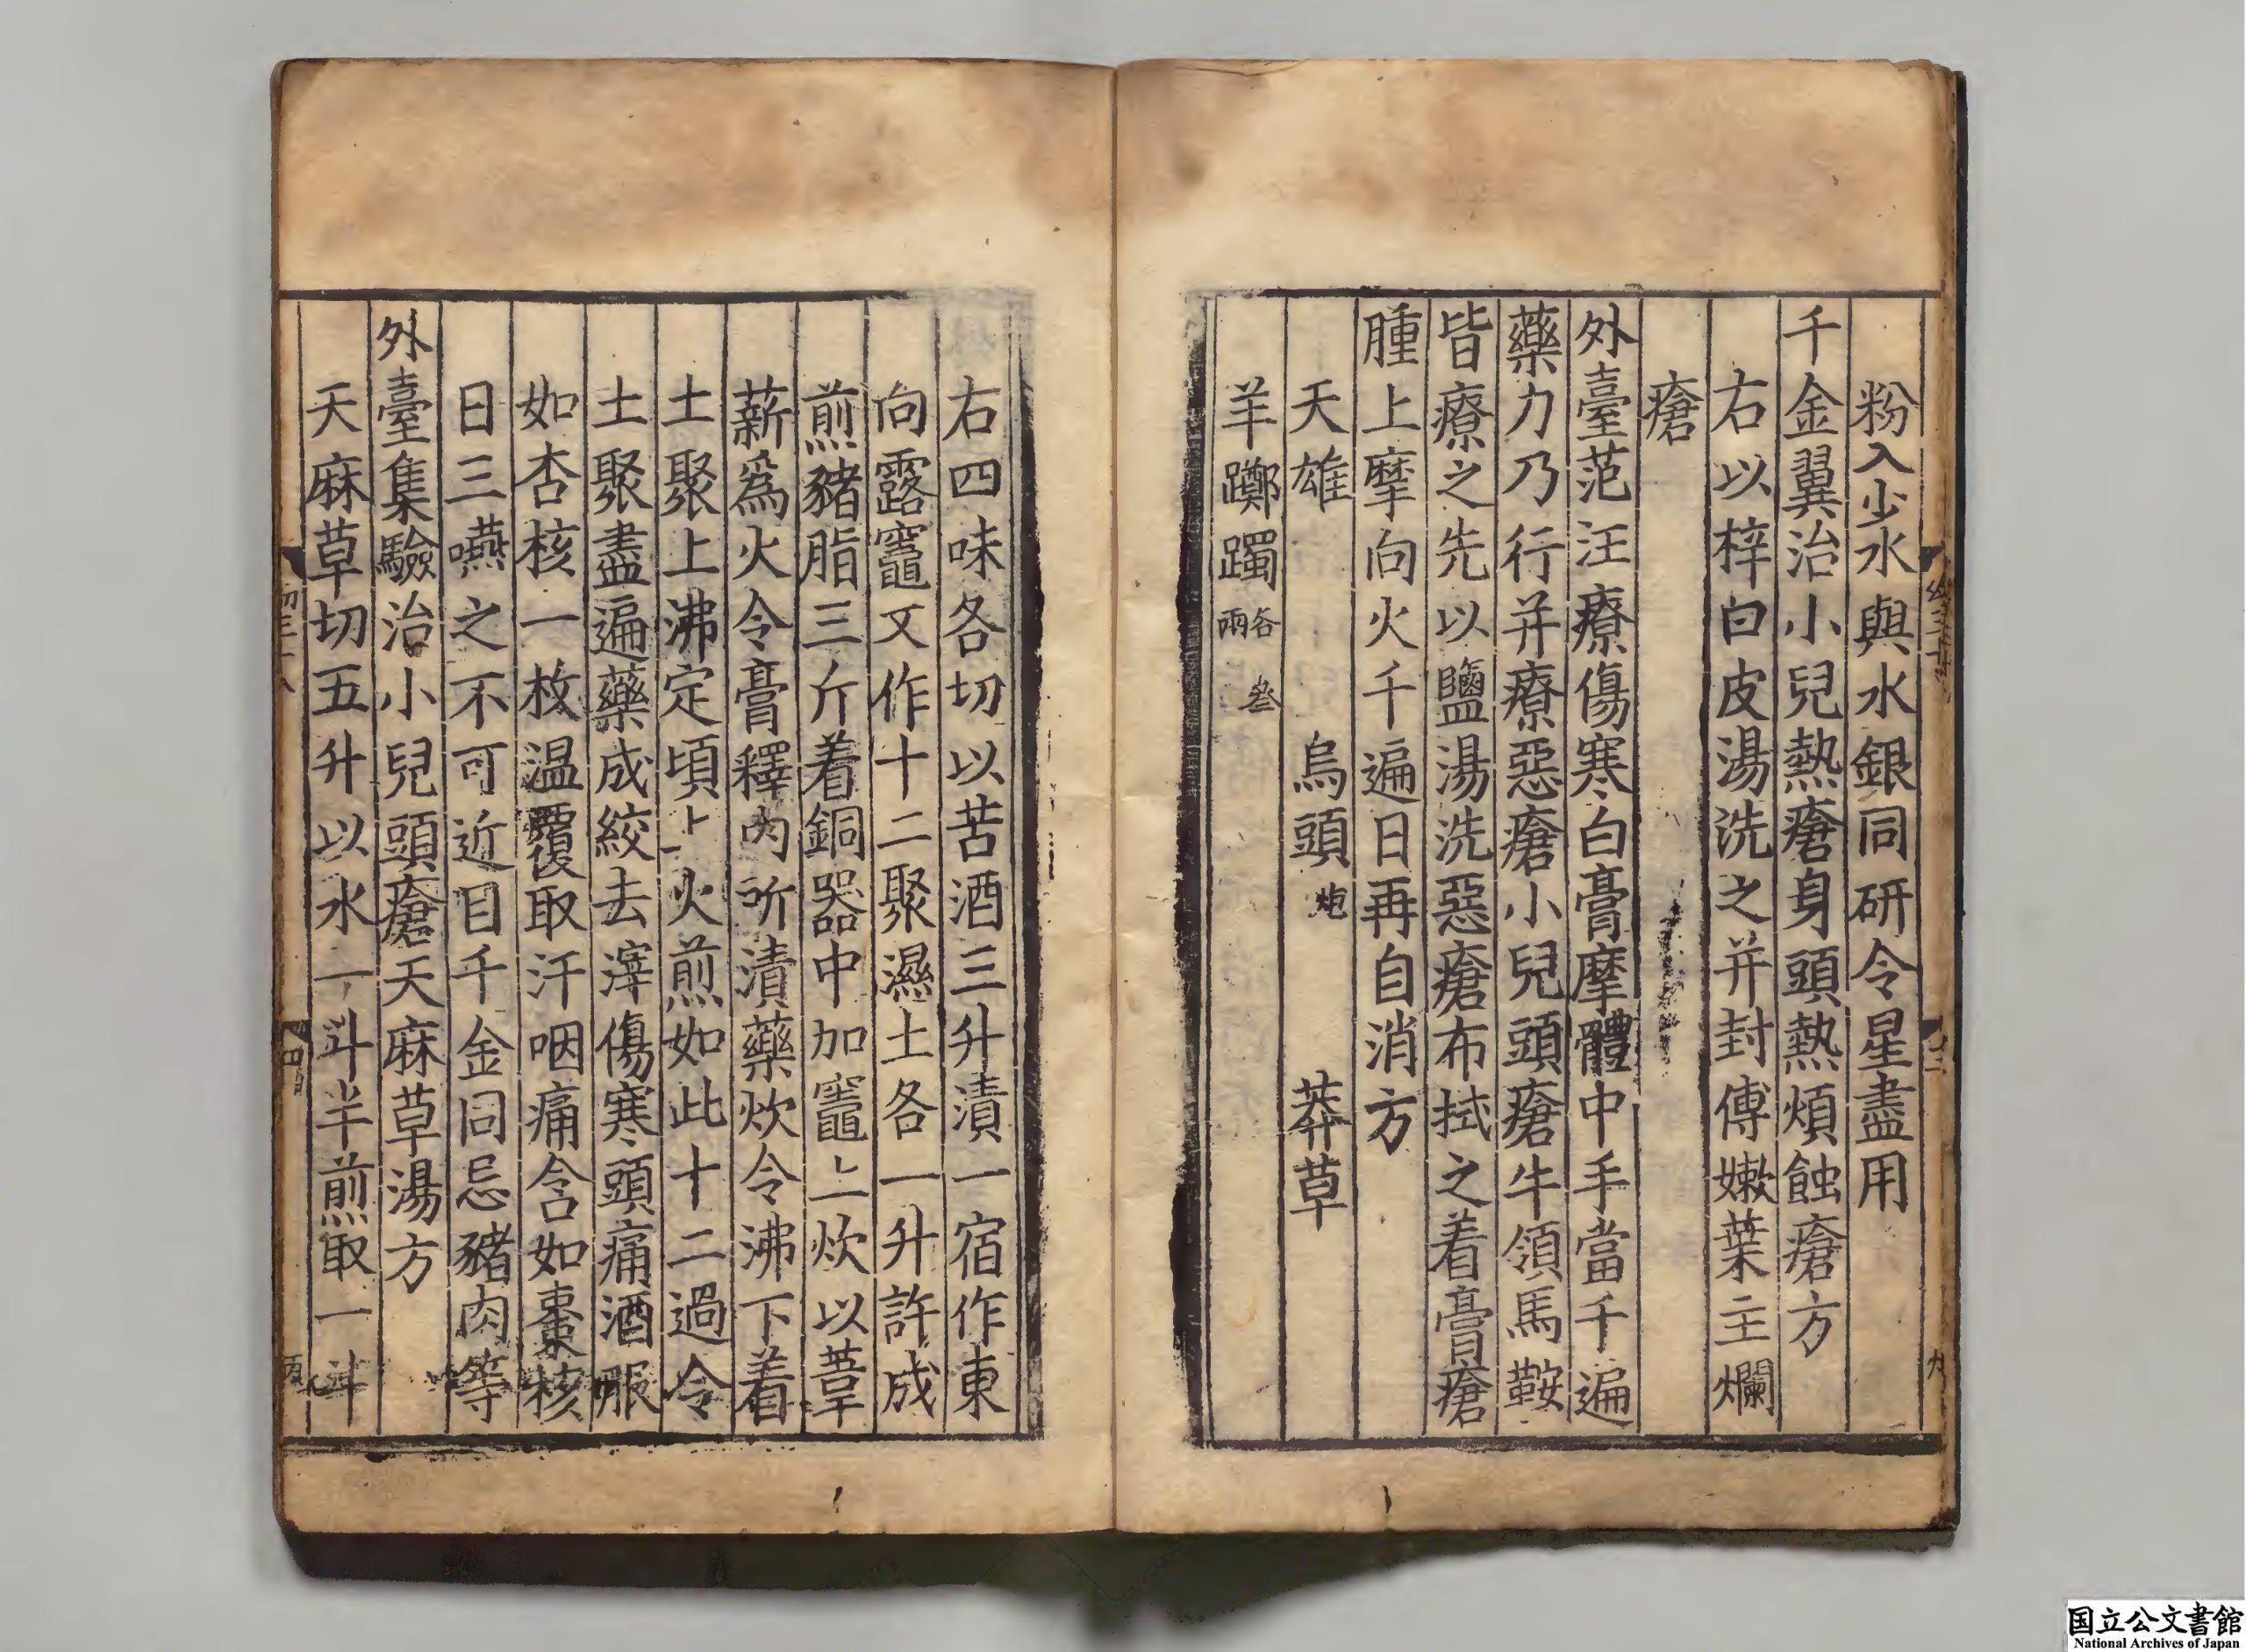 粉入少水與水銀同研令星盡用
千金翼治小兒熱瘡身頭熱煩蝕瘡方
右以梓白皮湯洗之并封傅嫩葉主爛
瘡
外臺范汪療傷寒白膏摩體中手當千遍
藥力乃行并療惡瘡小兒頭瘡牛領馬鞍
皆療之先以鹽湯洗惡瘡布拭之着膏瘡
腫上摩向火千遍日再自消方
天雄 烏頭炮 莽草
羊躑躅各叁兩
右四味各切以苦酒三升漬一宿作東
向露竈又作十二聚濕土各一升許成
煎豬脂三斤着銅器中加竈上炊以葦
薪爲火令膏釋內所漬藥炊令沸下着
土聚上沸定頃上火煎如此十二過令
土聚盡遍藥成絞去滓傷寒頭痛酒服
如杏核一枚溫覆取汗咽痛含如棗核
日三嚥之不可近目千金同忌豬肉等
外臺集驗治小兒頭瘡天麻草湯方
天麻草切五升以水一斗半煎取一斗
国立公文書館
National Archives of Japan